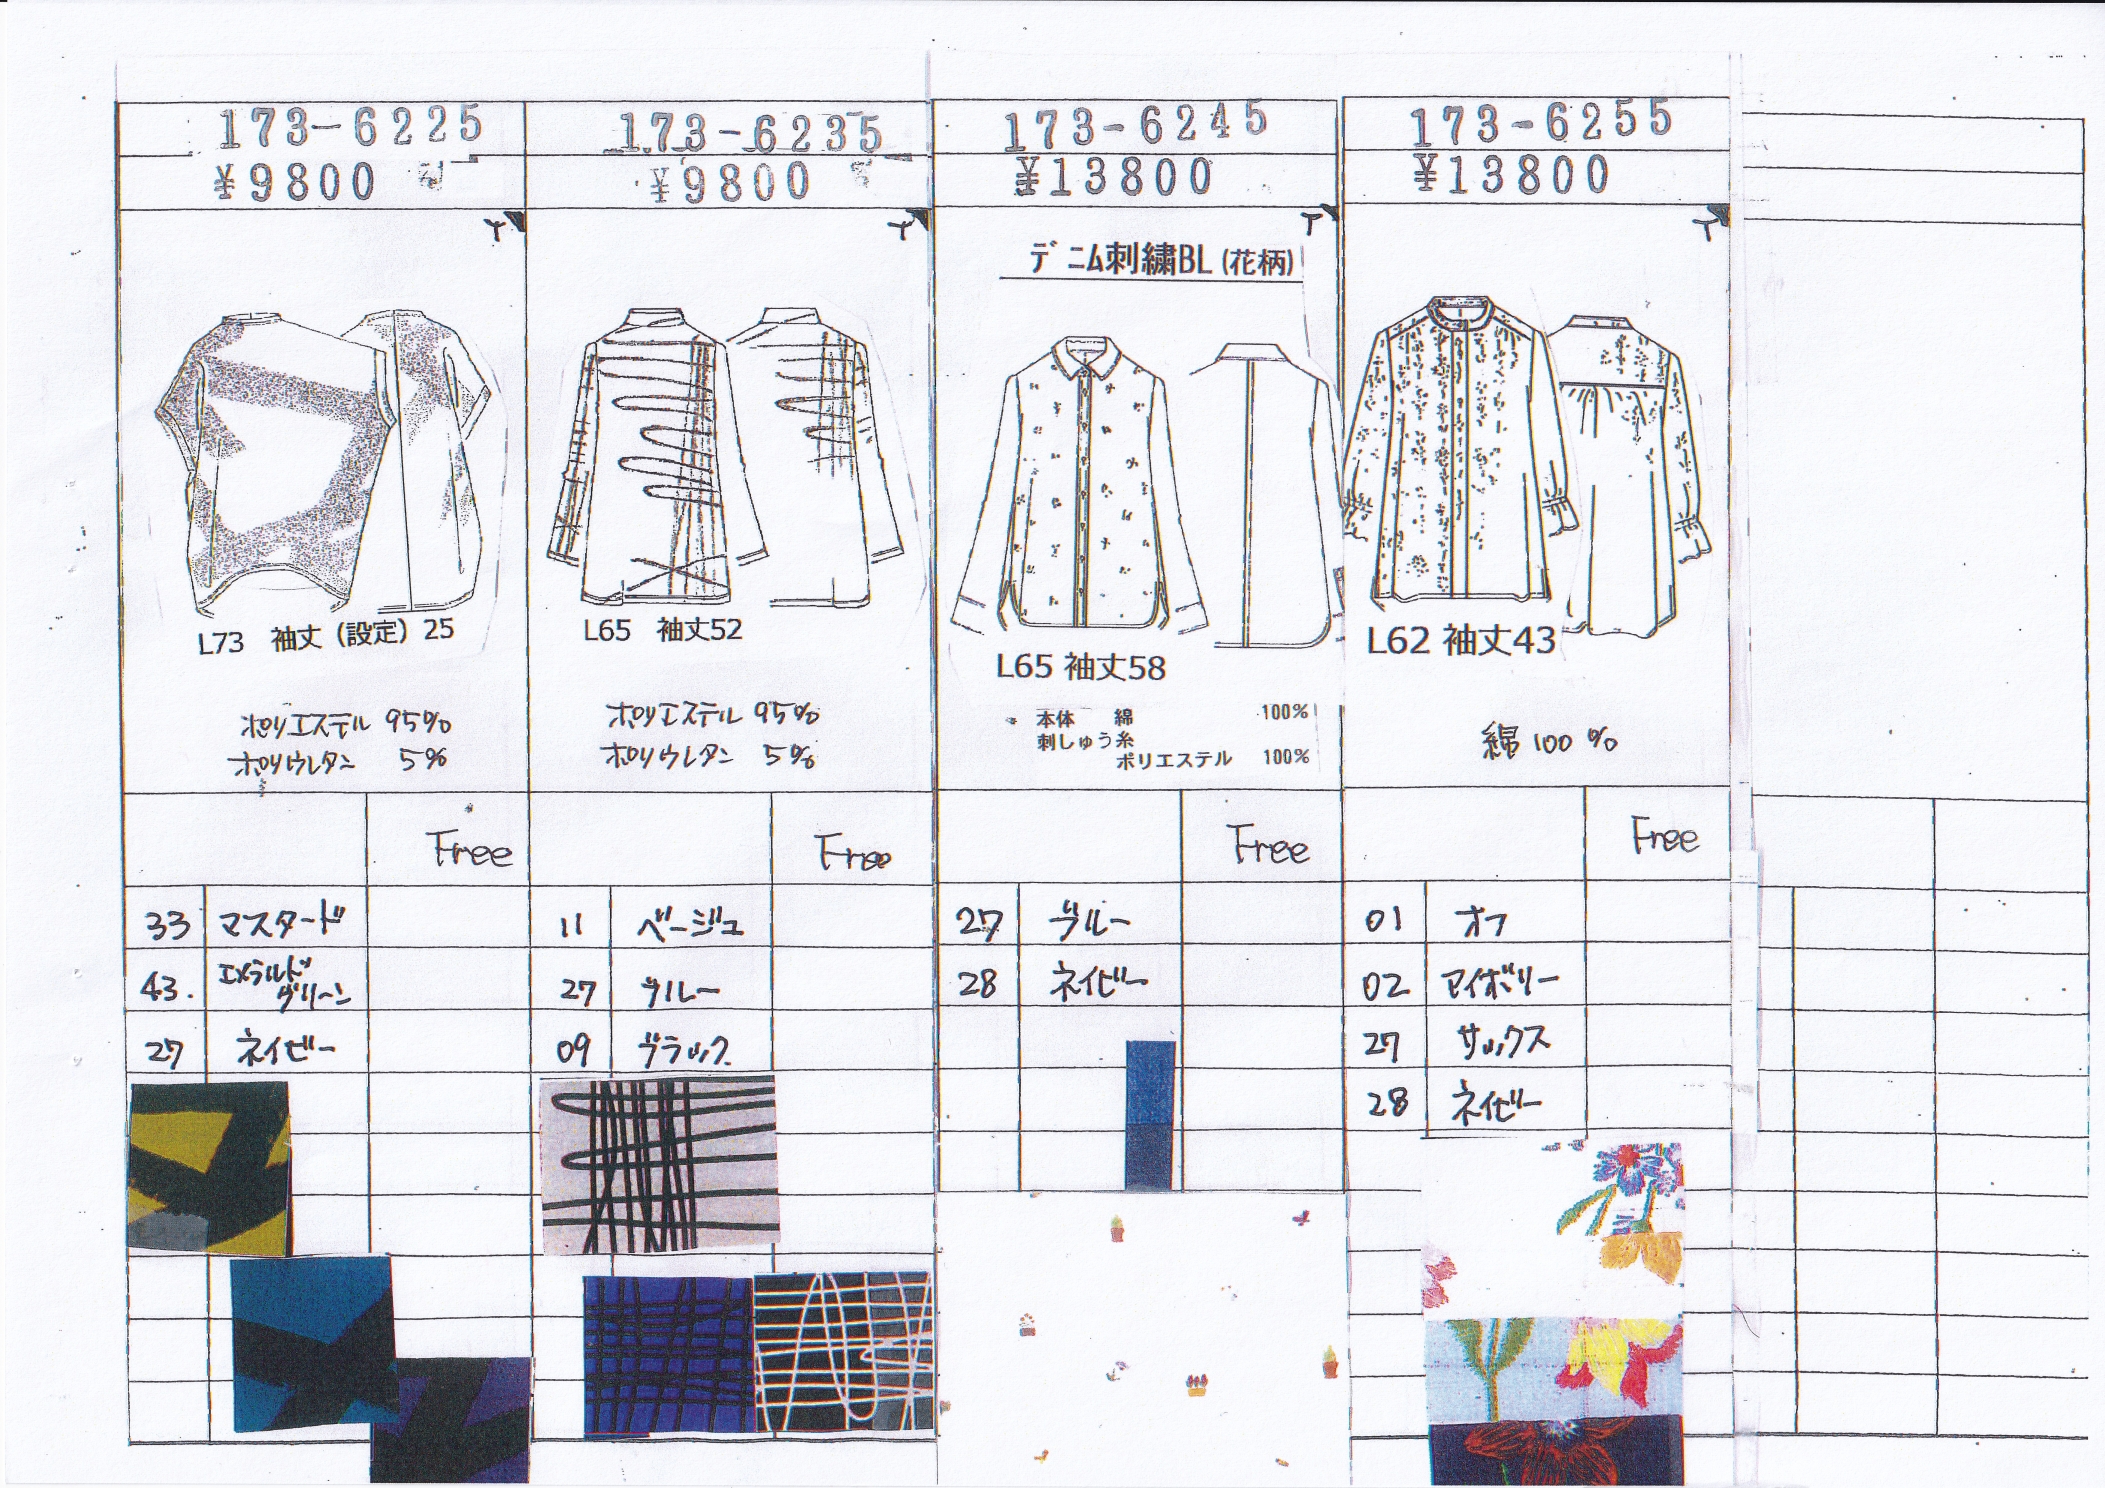 173-6225
¥9800
L73 袖丈（設定）25
ポリエステル 95%
ポリウレタン 5%
Free
33 マスタード
43. エメラルドグリーン
27 ネイビー
173-6235
¥9800
L65 袖丈52
ポリエステル 95%
ポリウレタン 5%
Free
11 ベージュ
27 ブルー
09 ブラック
173-6245
¥13800
デニム刺繍BL(花柄)
L65 袖丈58
本体 綿 100%
刺しゅう糸
ポリエステル 100%
Free
27 ブルー
28 ネイビー
173-6255
¥13800
L62 袖丈43
綿 100%
Free
01 オフ
02 アイボリー
27 サックス
28 ネイビー